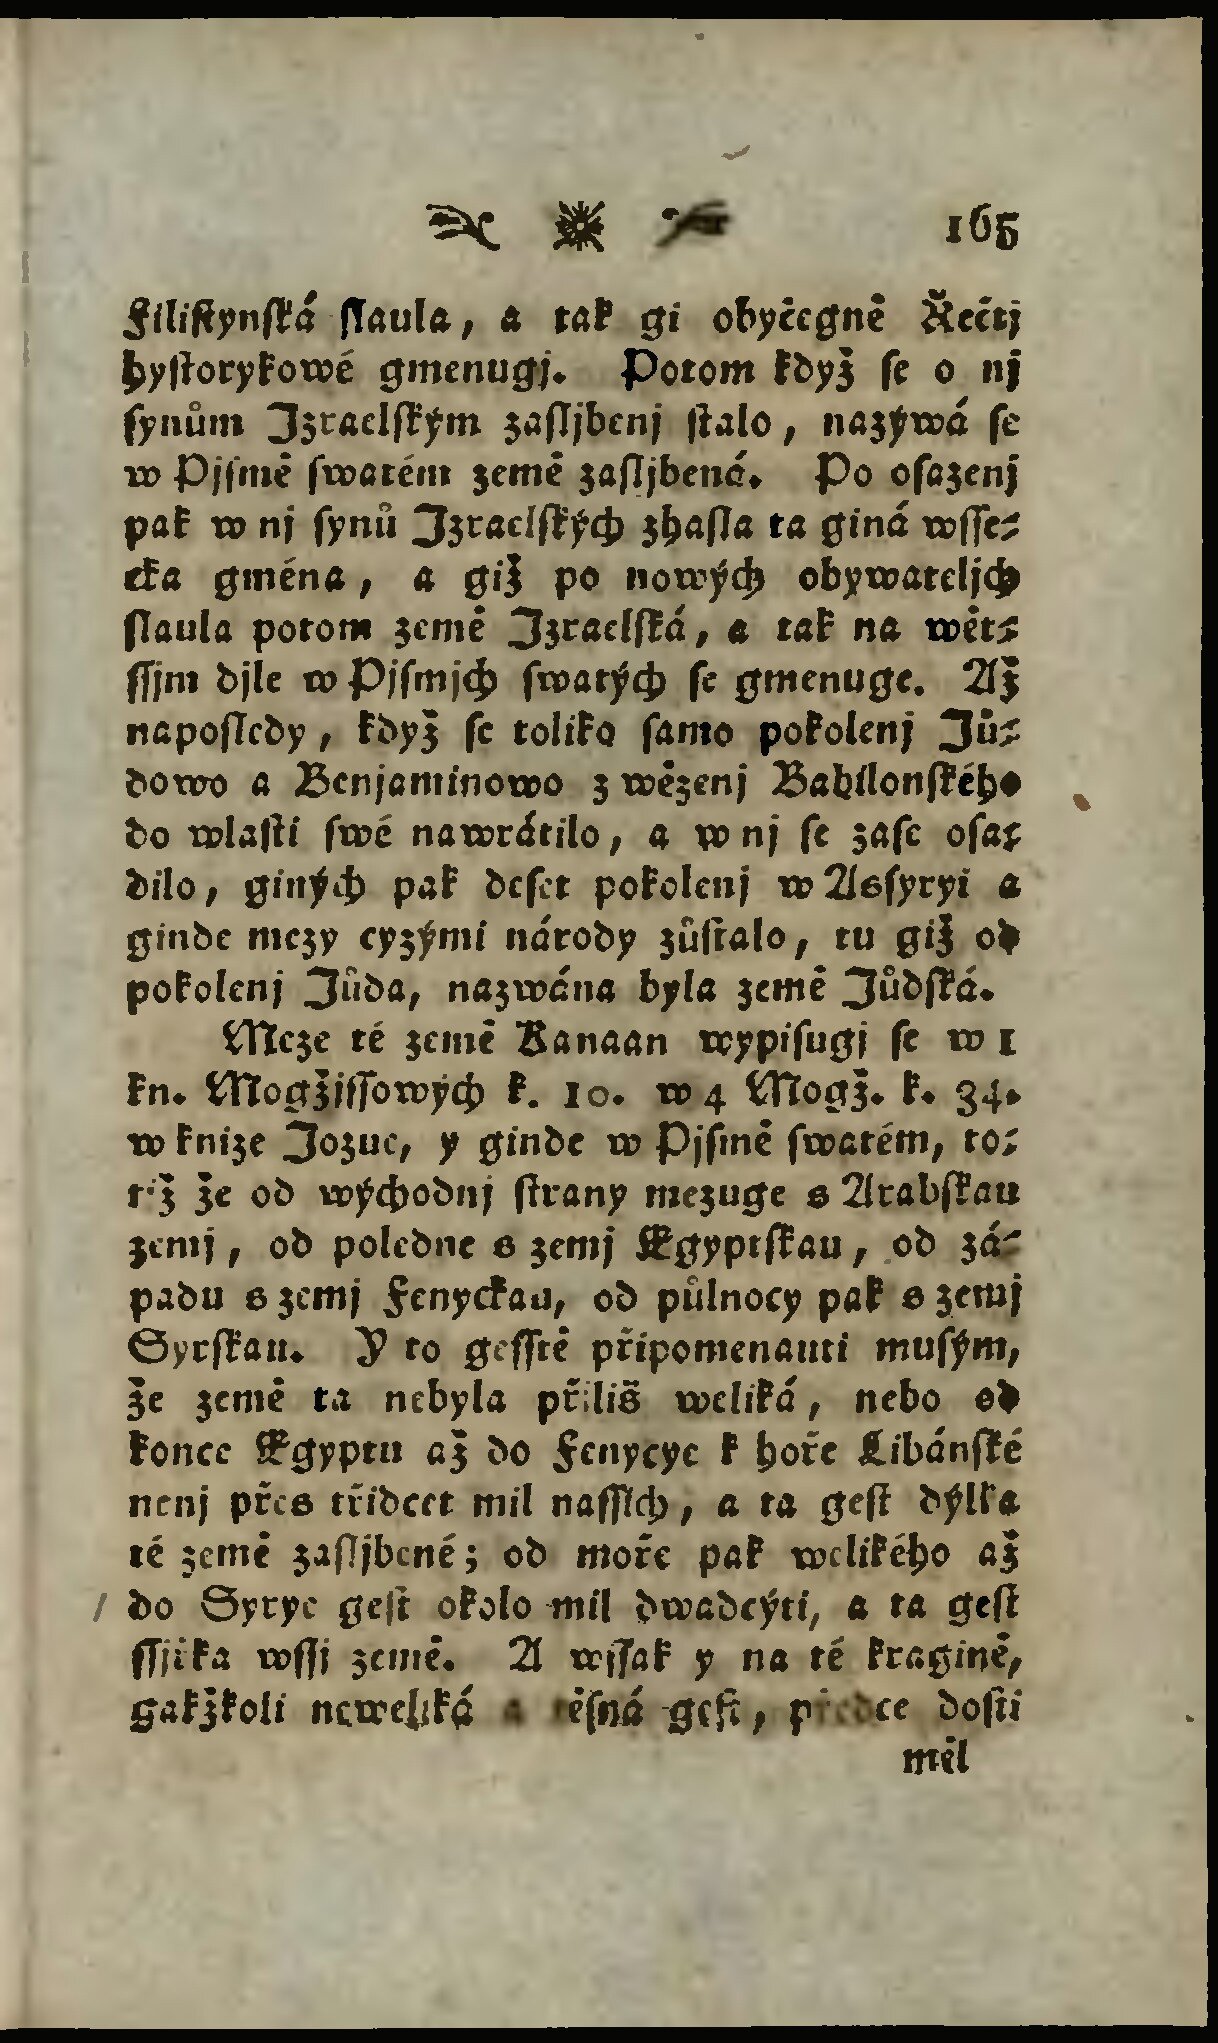 165
Filistynská slaula, a tak gi obyčegně Řečtj
hystorykowé gmenugj. Potom když se o nj
synům Jzraelským zasljbenj stalo, nazýwá se
w Pjsmě swatém země zasljbená. Po osazenj
pak w nj synů Jzraelských zhasla ta giná wsse-
cka gména, a giž po nowých obywateljch
slaula potom země Jzraelská, a tak na wět-
ssjm djle w Pjsmjch swatých se gmenuge. Až
naposledy, když se toliko samo pokolenj Jů-
dowo a Benjaminowo z wězenj Babilonského
do wlasti swé nawrátilo, a w nj se zase osa-
dilo, giných pak deset pokolenj w Assyryi a
ginde mezy cyzými národy zůstalo, tu giž od
pokolenj Jůda, nazwána byla země Jůdská.
Meze té země Kanaan wypisugj se w 1
kn. Mogžjssowých k. 10. w 4 Mogž. k. 34.
w knize Jozue, y ginde w Pjsmě swatém, to-
tiž že od východnj strany mezuge s Arabskau
zemj, od poledne s zemj Egyptskau, od zá-
padu s zemj Fenyckau, od půlnocy pak s zemj
Syrskau. Y to gesstě připomenauti musým,
že země ta nebyla příliš weliká, nebo od
konce Egyptu až do Fenycye k hoře Libánské
nenj přes třidcet mil nassich, a ta gest dýlka
té země zasljbené; od moře pak welikého až
do Syrye gest okolo mil dwadcýti, a ta gest
ssjřka wssj země. A wssak y na té kragině,
gakžkoli neweliká a těsná gest, předce dosti
měl